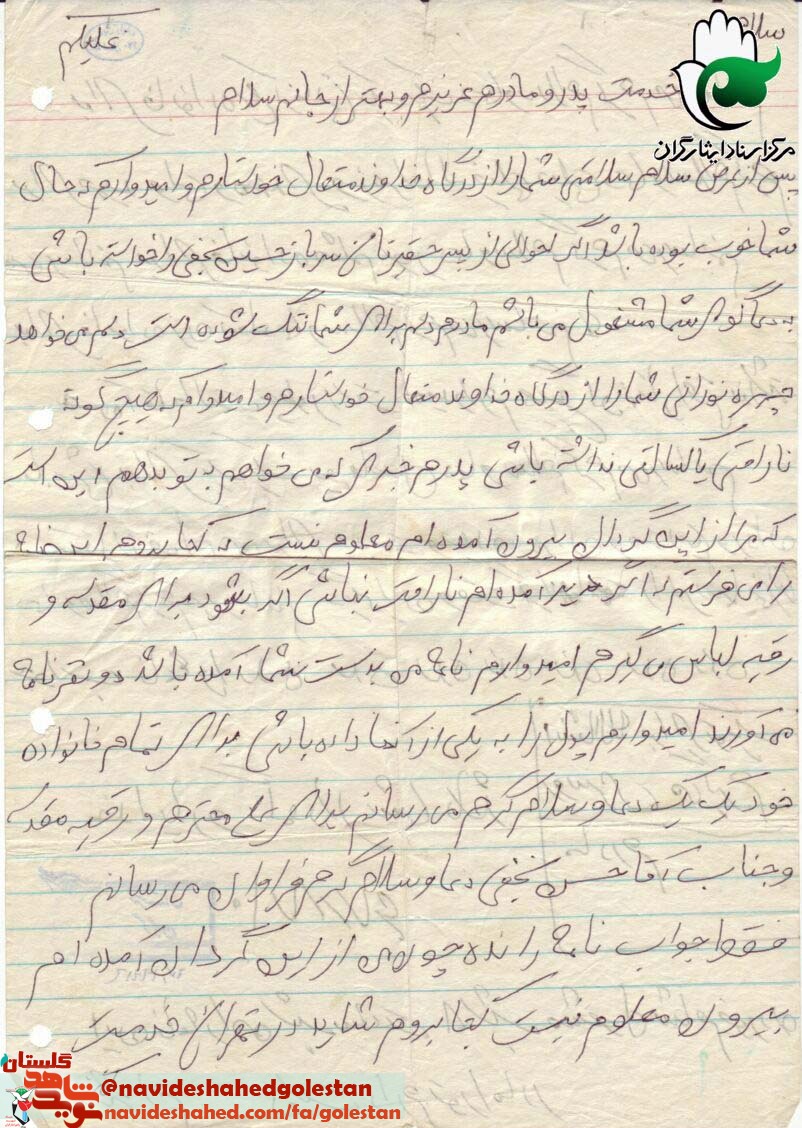 سلام علیکم
خدمت پدر و مادرم عزیزم و بهتر از جانم سلام
مرکز اسناد ایثارگران
پس از عرض سلام سلامتی شما را از درگاه خداوند متعال خواستارم و امیدوارم که حال
شما خوب بوده باشد اگر احوالی از پسر حقیرتان سرباز حسین نجفی را خواسته باشی
به دعا گوی شما مشغول می باشم مادرم دلم برای شما تنگ شوده است دلم می خواهد
چهره نورانی شما را از درگاه خداوند متعال خواستارم و امیدوارم که هیچ گونه
ناراحتی یا کسالتی نداشته باشی پدرم خبری که می خواهم به تو بدهم این است
که مرا از این گردان بیرون آمده ام معلوم نیست که کجا بروم این نامه
را می فرستم که اگر دیر آمده ام ناراحت نباشی اگر بشود برای مقدسه و
رقیه لباس می گیرم امیدوارم نامه من بدست شما آمده باشد دو نفر نامه
می آورند امیدوارم پول را به یکی از آنها داده باشی برای تمام خانواده
خود یک یک دعا و سلام گرم می رسانم برای علی محترم و رقیه مقدسه
و جناب آقا حسن نجفی دعا و سلام گرم فراوان می رسانم
فقط جواب نامه را نده چون من از این گردان آمده ام
بیرون معلوم نیست کجا بروم شاید در تهران خدمت
گلستان
نوید شاهد
@navideshahedgolestan
navideshahed.com/fa/golestan